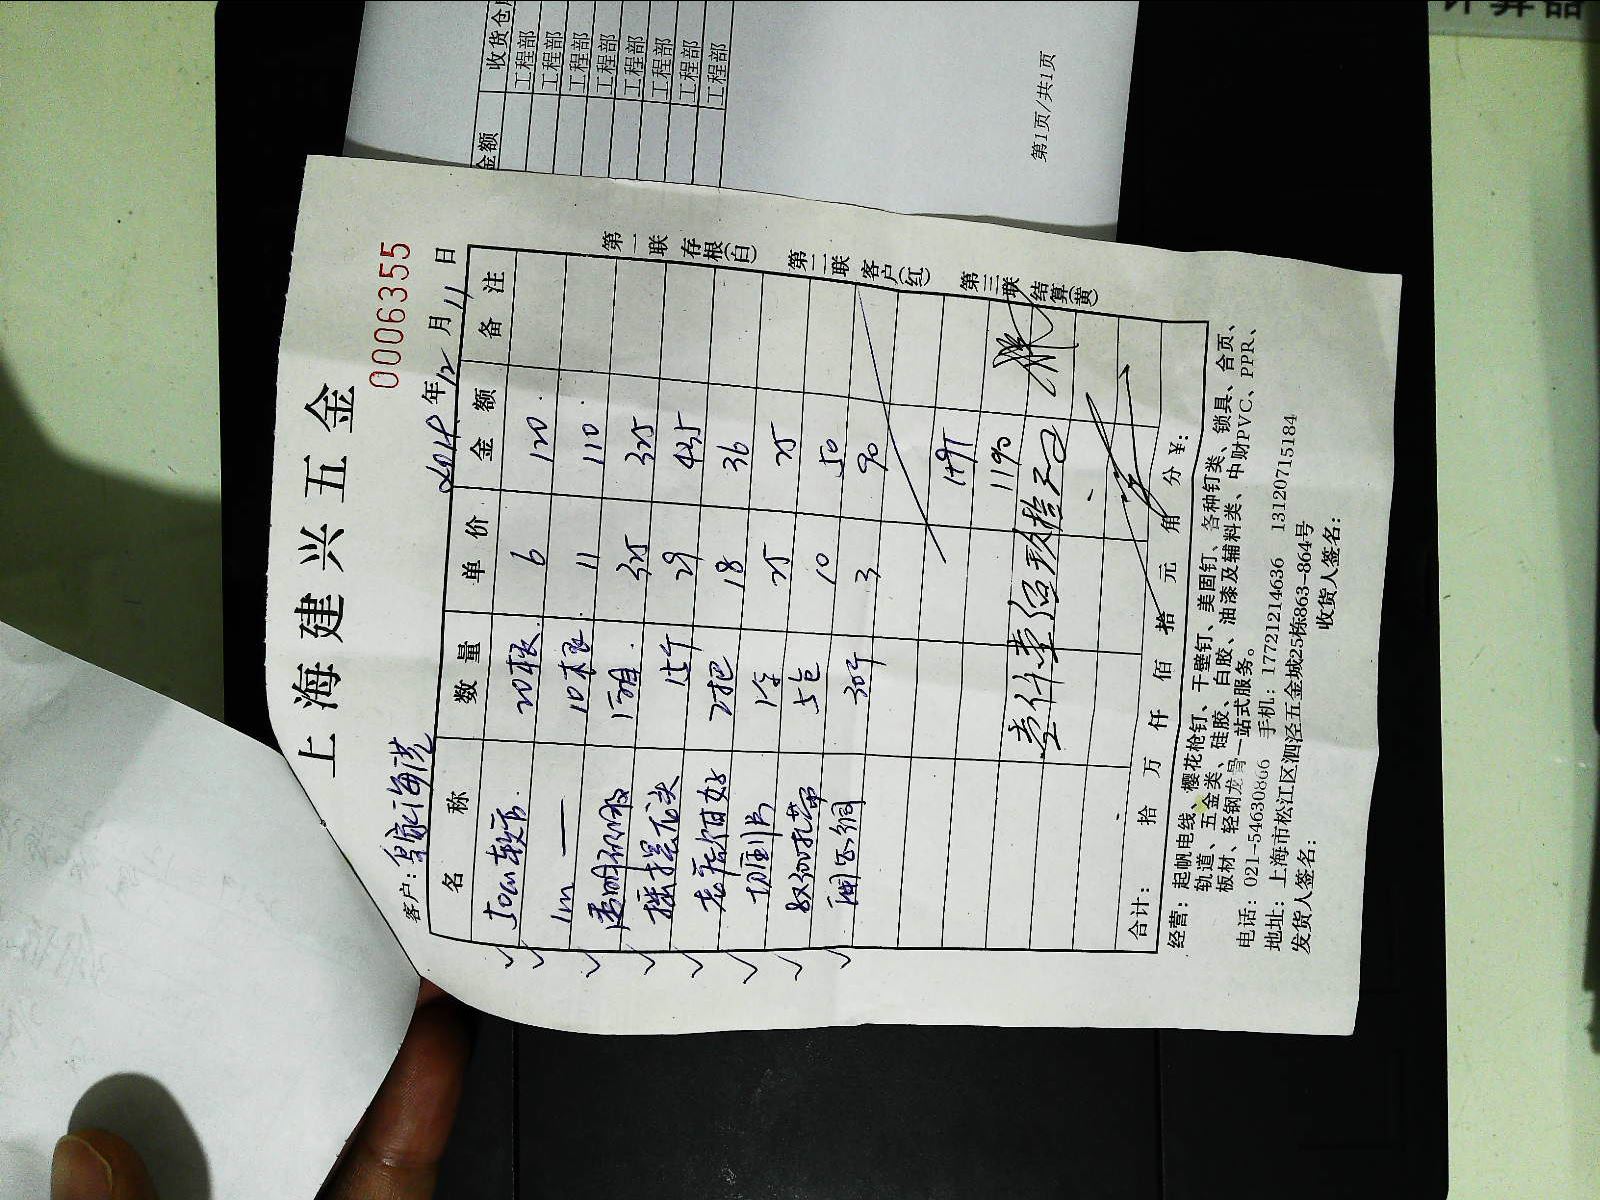 上海建兴五金
0006355
客户：
年12月11日
名称 数量 单价 金额 备注
50cm软管 20根 6 120
1m — 10根 11 110
1 325 325
15个 29 435
2把 18 36
切割片 1 25 25
扎带 5包 10 50
30个 3 90
1191
1190
壹仟壹佰玖拾元
合计： 拾 万 仟 佰 拾 元 角 分 ¥：
第一联存根(白)
第二联客户(红)
第三联结算(黄)
经营：起帆电线、樱花枪钉、干壁钉、美固钉、各种钉类、锁具、合页、
轨道、五金类、硅胶、白胶、油漆及辅料类、中财PVC、PPR、
板材、轻钢龙骨一站式服务。
电话：021-54630866 手机：17721214636 13120715184
地址：上海市松江区泗泾五金城25栋863-864号
发货人签名： 收货人签名：
金额 收货仓库
工程部
工程部
工程部
工程部
工程部
工程部
工程部
工程部
第1页/共1页
计算器